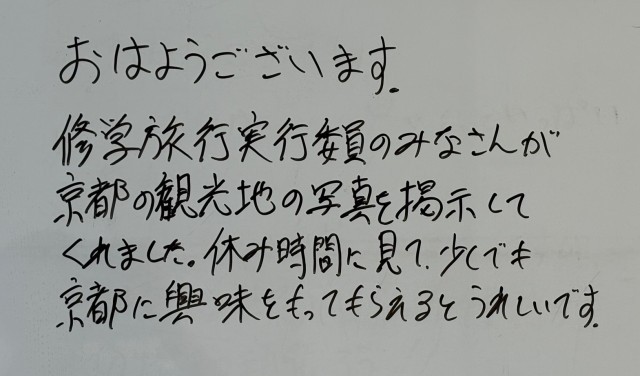 おはようございます。
修学旅行実行委員のみなさんが
京都の観光地の写真を掲示して
くれました。休み時間に見て、少しでも
京都に興味をもってもらえるとうれしいです。